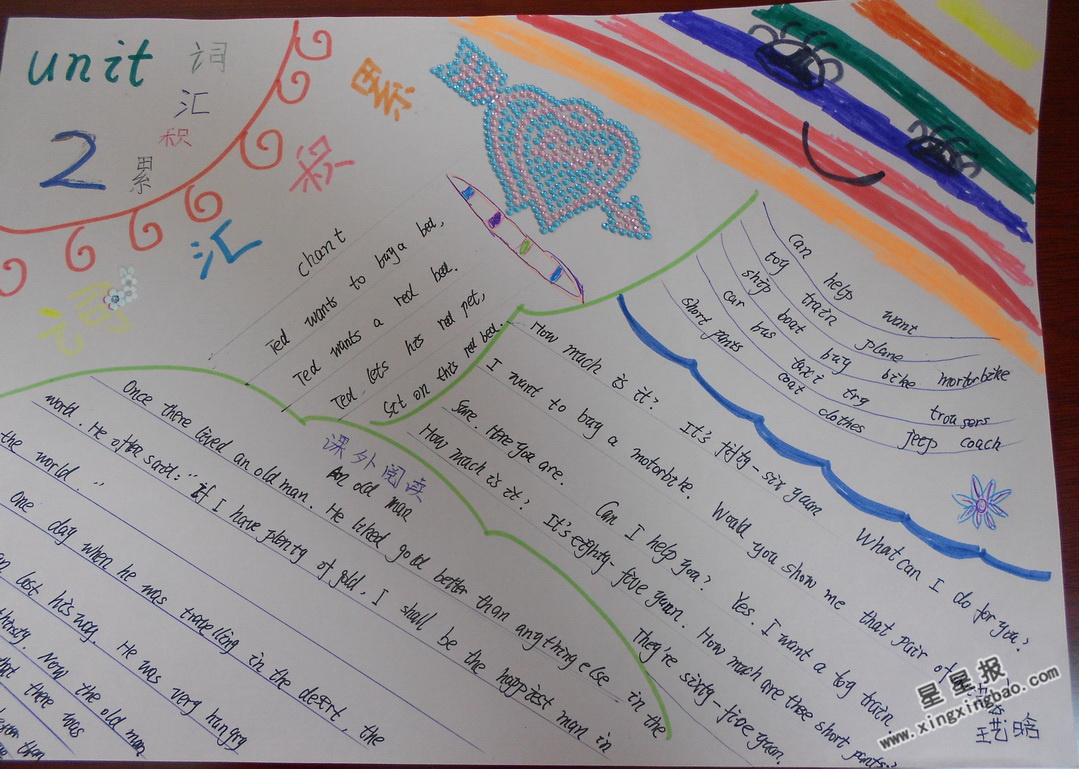 unit 词
汇
2 积
累
词
汇
积
累
Chant
Ted wants to buy a bed,
Ted wants a red bed.
Ted lets his red pet,
Get on this red bed.
can help want
toy train plane
ship boat buy bike mortorbike
car bus taxi try trousors
short pants coat clothes jeep coach
How much is it? It's fifty-six yuan What can I do for you?
I want to buy a motorbike. Would you show me that pair of
Sure. Here you are. Can I help you? Yes. I want a toy train.
How much is it? It's eighty-five yuan. How much are these short pants?
They're sixty-five yuan.
课外阅读
An old man
Once there lived an old man. He liked gold better than anything else in the
world. He often said: "if I have plenty of gold, I shall be the happiest man in
the world."
One day when he was travelling in the desert, the
lost his way. He was very hungry
Now the old man
there was
than
王艺晗
星星报
www.xingxingbao.com